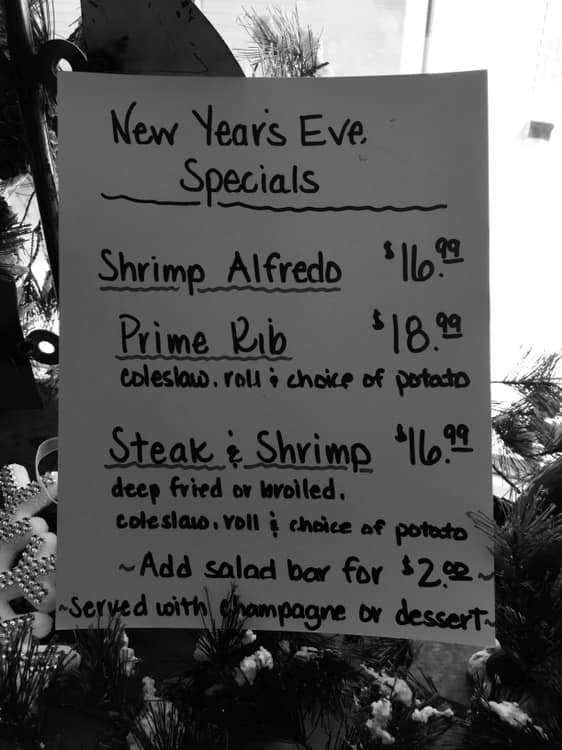 New Year's Eve
Specials
Shrimp Alfredo $16.99
Prime Rib $18.99
coleslaw, roll & choice of potato
Steak & Shrimp $16.99
deep fried or broiled.
coleslaw, roll & choice of potato
~Add salad bar for $2.00~
~Served with champagne or dessert~